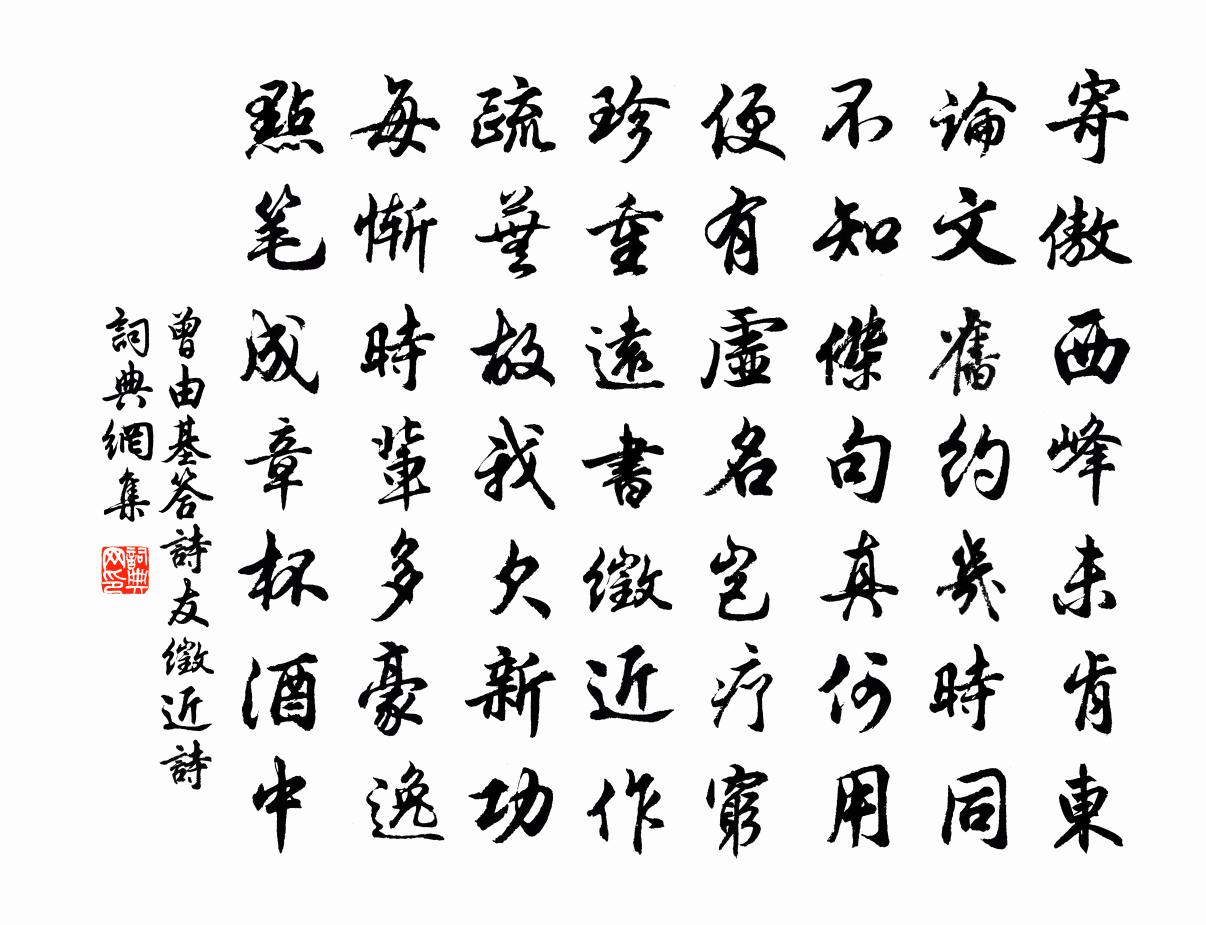 寄傲西峰未肯東
論文舊約幾時同
不知傑句真何用
便有虛名豈疗窮
珍重遠書徵近作
疏蕪故我欠新功
每慚時輩多豪逸
點笔成章杯酒中
曾由基答詩友徵近詩
詞典網集
詞典网印